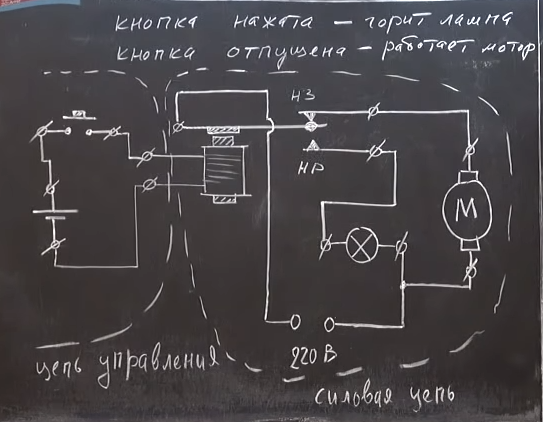 кнопка нажата – горит лампа
кнопка отпущена – работает мотор
НЗ
НР
М
220 В
цепь управления
силовая цепь